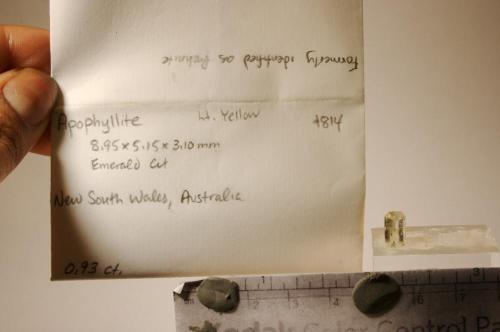 Formerly identified as Prehnite
Apophyllite Lt. Yellow +814
8.95 x 5.15 x 3.10 mm
Emerald Cut
New South Wales, Australia
0.93 ct.
1 3
2 4 6 7
Kodak Color Control Pa